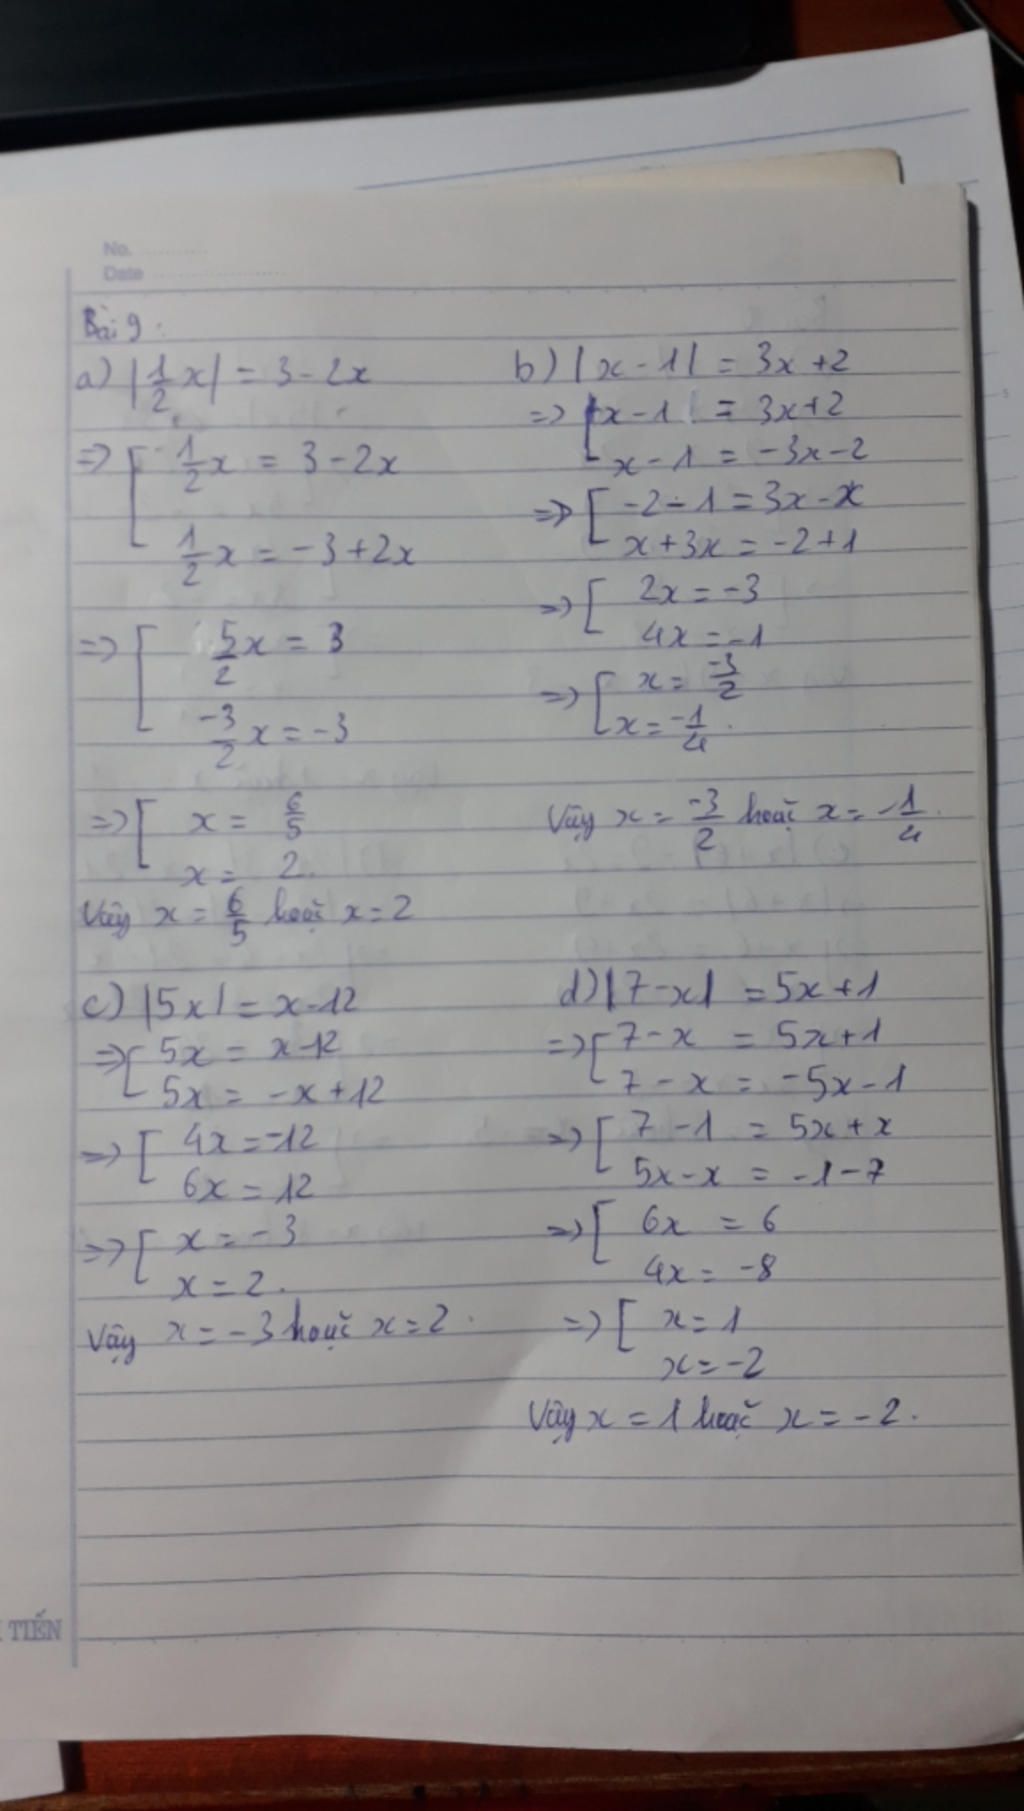 No.
Date
Bài 9:
a) |1/2 x| = 3 - 2x
=> [ 1/2 x = 3 - 2x
1/2 x = -3 + 2x
=> [ 5/2 x = 3
-3/2 x = -3
=> [ x = 6/5
x = 2.
Vậy x = 6/5 hoặc x = 2
b) |x - 1| = 3x + 2
=> [ x - 1 = 3x + 2
x - 1 = -3x - 2
=> [ -2 - 1 = 3x - x
x + 3x = -2 + 1
=> [ 2x = -3
4x = -1
=> [ x = -3/2
x = -1/4.
Vậy x = -3/2 hoặc x = -1/4.
c) |5x| = x - 12
=> [ 5x = x - 12
5x = -x + 12
=> [ 4x = -12
6x = 12
=> [ x = -3
x = 2.
Vậy x = -3 hoặc x = 2.
d) |7 - x| = 5x + 1
=> [ 7 - x = 5x + 1
7 - x = -5x - 1
=> [ 7 - 1 = 5x + x
5x - x = -1 - 7
=> [ 6x = 6
4x = -8
=> [ x = 1
x = -2
Vậy x = 1 hoặc x = -2.
TIẾN